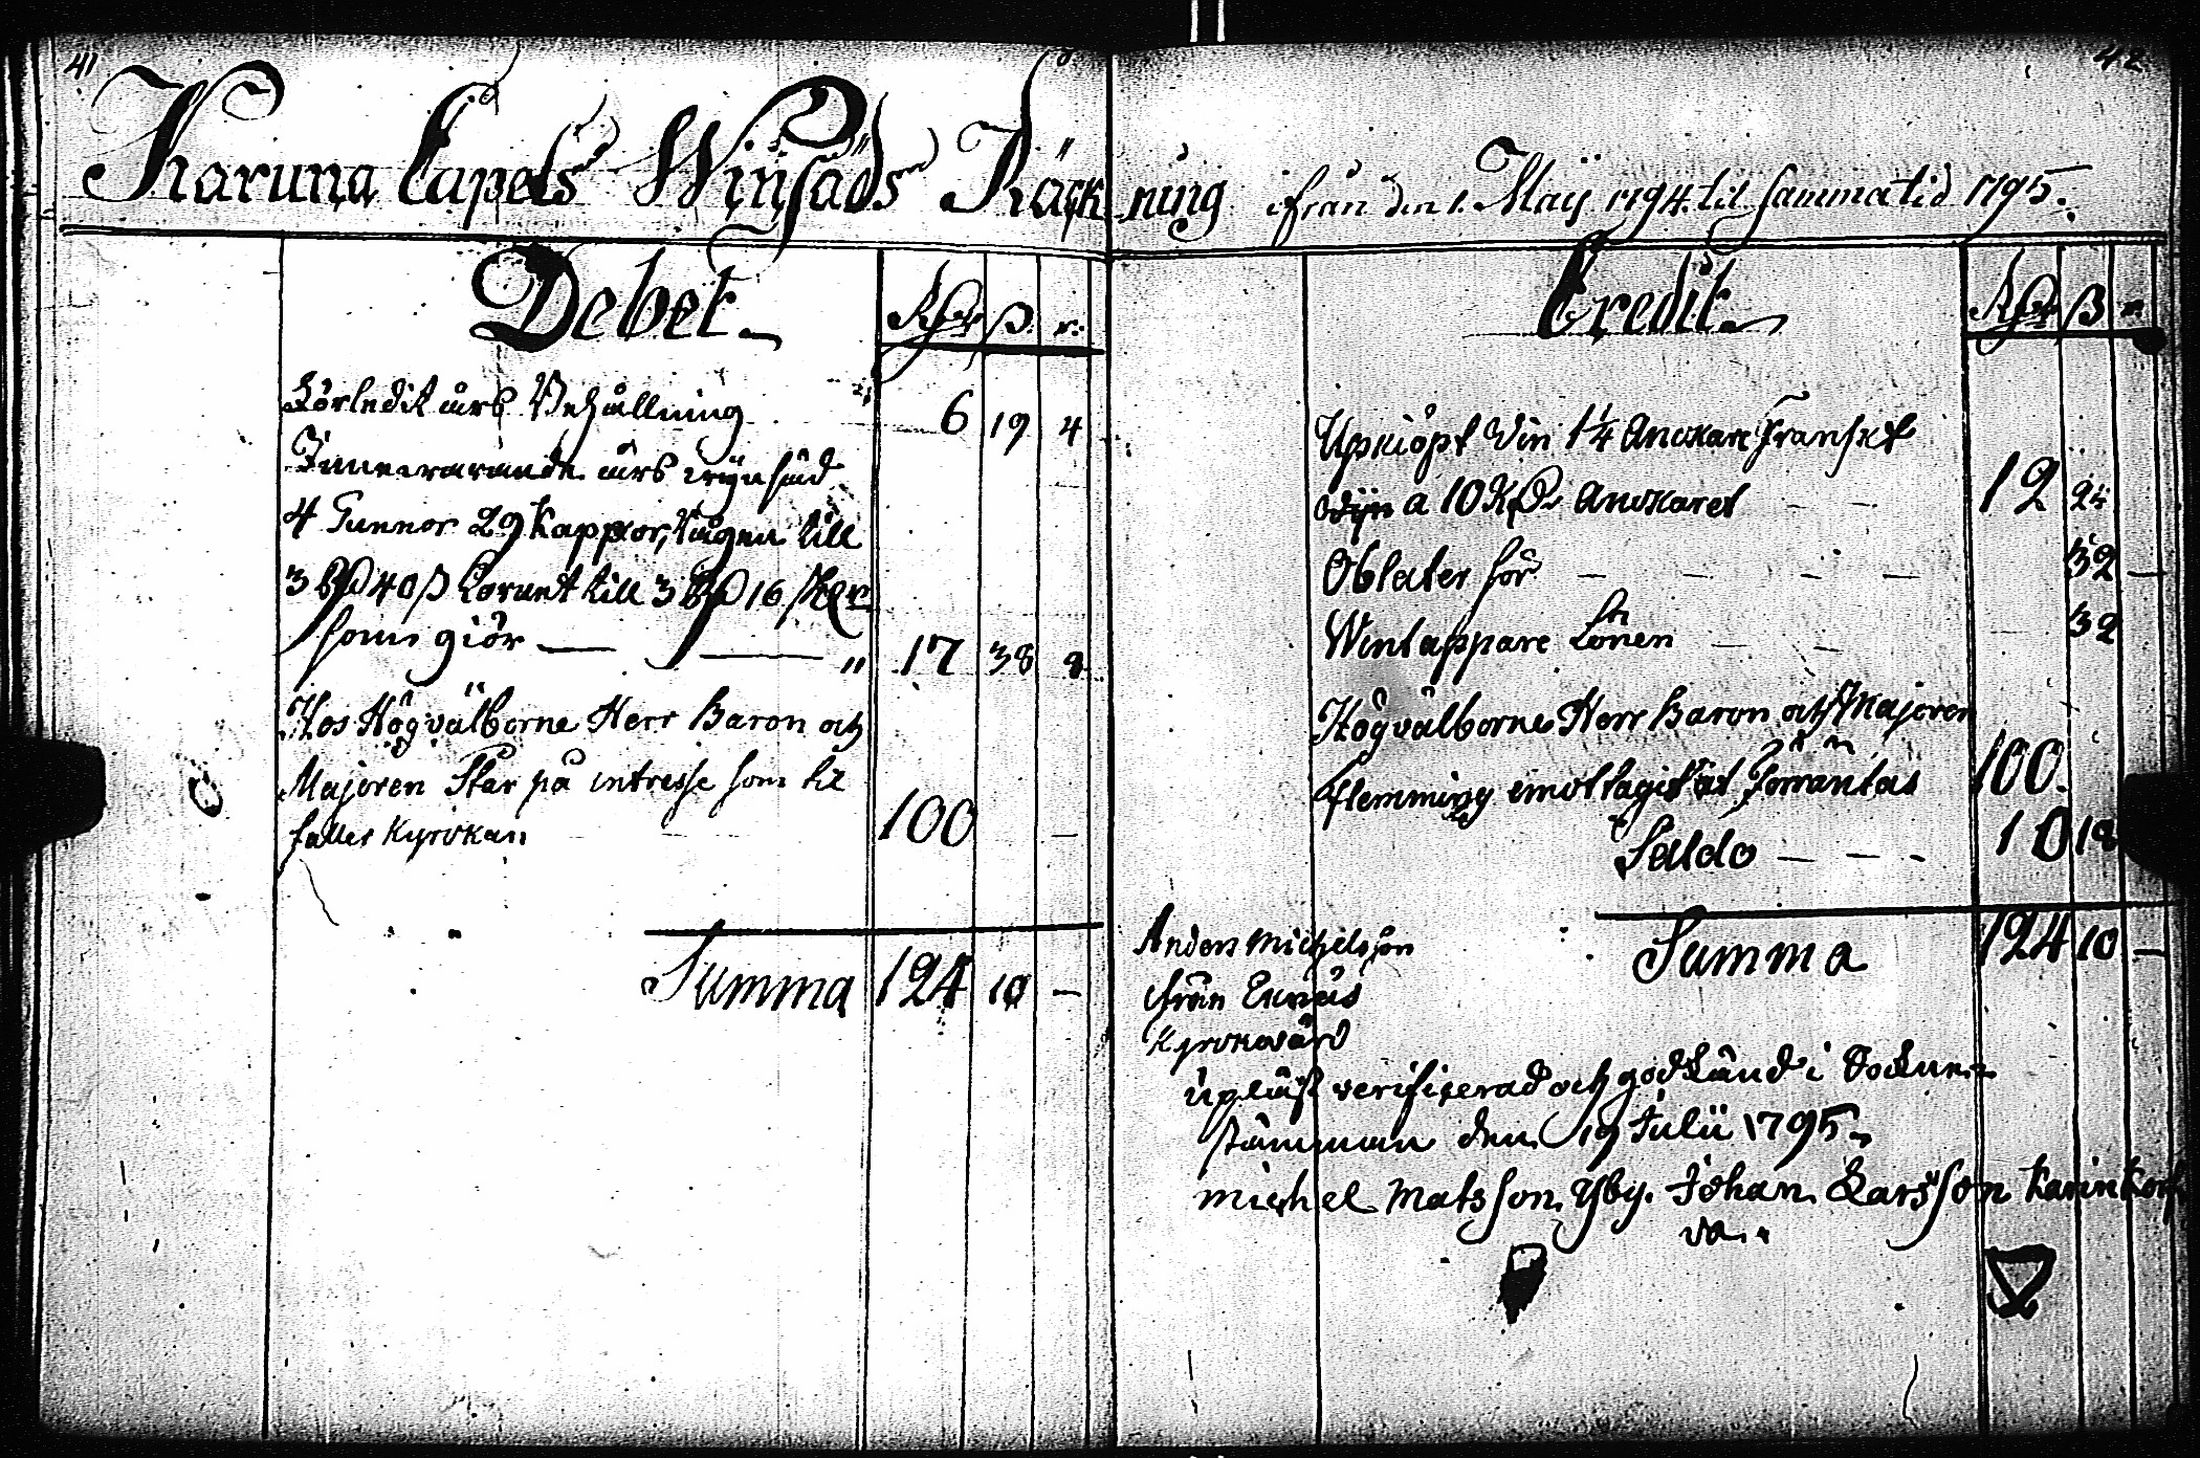 41
42
Karuna Capels Winsäds Räckning ifrån den 1. Maij 1794. til samma tid 1795.
Debet
Rdr ß r.
Förledit års Behållning 6 19 4
Innewarande års wijnsäd
4 Tunnor 29 Kappor, Rågen till
3 Rd 40 ß Cornet till 3 Rd 16
som giör 17 38 8
Hos Högvälborne Herr Baron och
Majoren Står på intresse som til
faller Kyrckan 100 —
Summa 124 10 —
Credit
Rdr ß r
Upkiöpt Vin 1 1/4 Anckare Franskt
Wijn a 10 Rd Anckaret 12 24
Oblater för 32 —
Wintappare Lönen 32
Högvälborne Herr Baron och Majoren
Flemming emottagit 100.
Saldo 10 18
Summa 124 10 —
Anders Michelsson
ifrån Ecnäs
Kyrckovärd
Upläst verificerad och godkänd i Sockne
stämman den 19 Julii 1795.
Michel Matsson Yby. Johan Larsson Karinkorf
va.